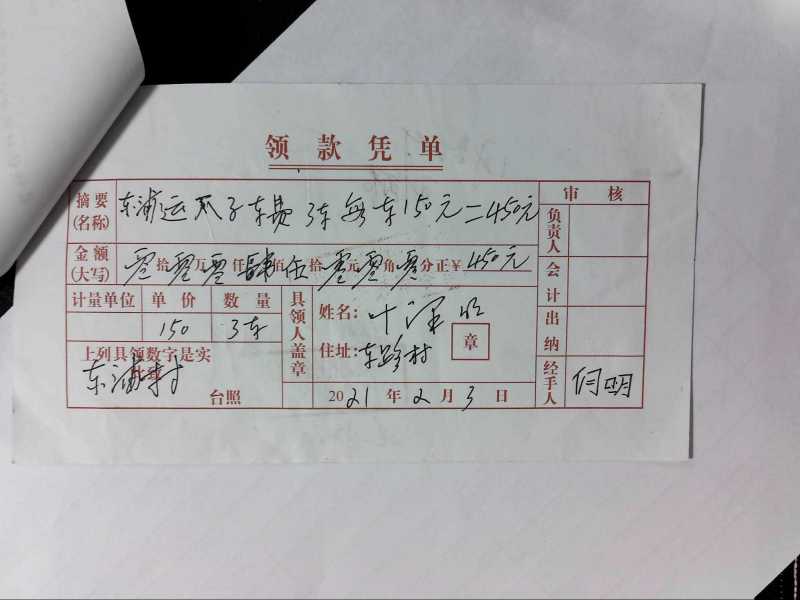 领款凭单
摘要(名称) 东浦运瓜子车费 3车 每车150元=450元
审核
金额(大写) 零拾零万零仟肆佰伍拾零元零角零分正¥450元
负责人
会计
计量单位 单价 数量
150 3车
具领人盖章
姓名:叶
章
住址:东路村
出纳
上列具领数字是实
东浦村
台照
2021年2月3日
经手人 何明